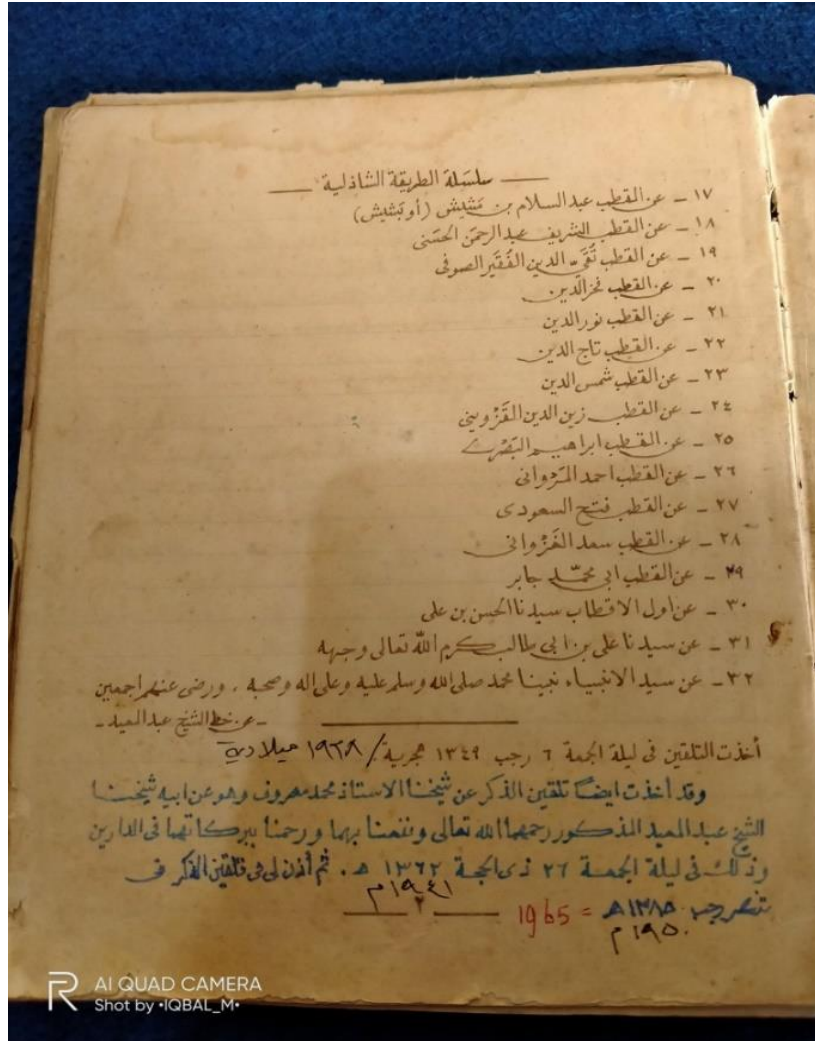 سلسلة الطريقة الشاذلية
١٧ - عن القطب عبد السلام بن مَشِيش (أو بَشِيش)
١٨ - عن القطب الشريف عبد الرحمن الحسَنى
١٩ - عن القطب تُقَىّ الدين الفُقَيّر الصوفى
٢٠ - عن القطب فخر الدين
٢١ - عن القطب نور الدين
٢٢ - عن القطب تاج الدين
٢٣ - عن القطب شمس الدين
٢٤ - عن القطب زين الدين القَزْوينى
٢٥ - عن القطب ابراهيم البَصْرى
٢٦ - عن القطب احمد المَرْوانى
٢٧ - عن القطب فتح السعودى
٢٨ - عن القطب سعد الغَزْوانى
٢٩ - عن القطب ابى محمّد جابر
٣٠ - عن اول الاقطاب سيدنا الحسن بن على
٣١ - عن سيدنا على بن ابى طالب كرم الله تعالى وجهه
٣٢ - عن سيد الانبياء نبينا محمد صلى الله وسلم عليه وعلى اله وصحبه ، ورضى عنهم اجمعين
- عن خط الشيخ عبد المعيد -
أخذت التلقين فى ليلة الجمعة ٦ رجب ١٣٤٩ هجرية / ١٩٢٨ ميلادية
وقد أخذت ايضاً تلقين الذكر عن شيخنا الاستاذ محمد معروف وهو عن ابيه شيخنا
الشيخ عبد المعيد المذكور رحمهما الله تعالى ونفعنا بهما ورحمنا ببركاتهما فى الدارين
وذلك فى ليلة الجمعة ٢٦ ذى الحجة ١٣٦٢ هـ. ثم أذن لى فى تلقين الذكر فى
١٩٤١م
رجب ١٣٨٥هـ = 1965
٢
١٩٥٠م
AI QUAD CAMERA
Shot by •IQBAL_M•